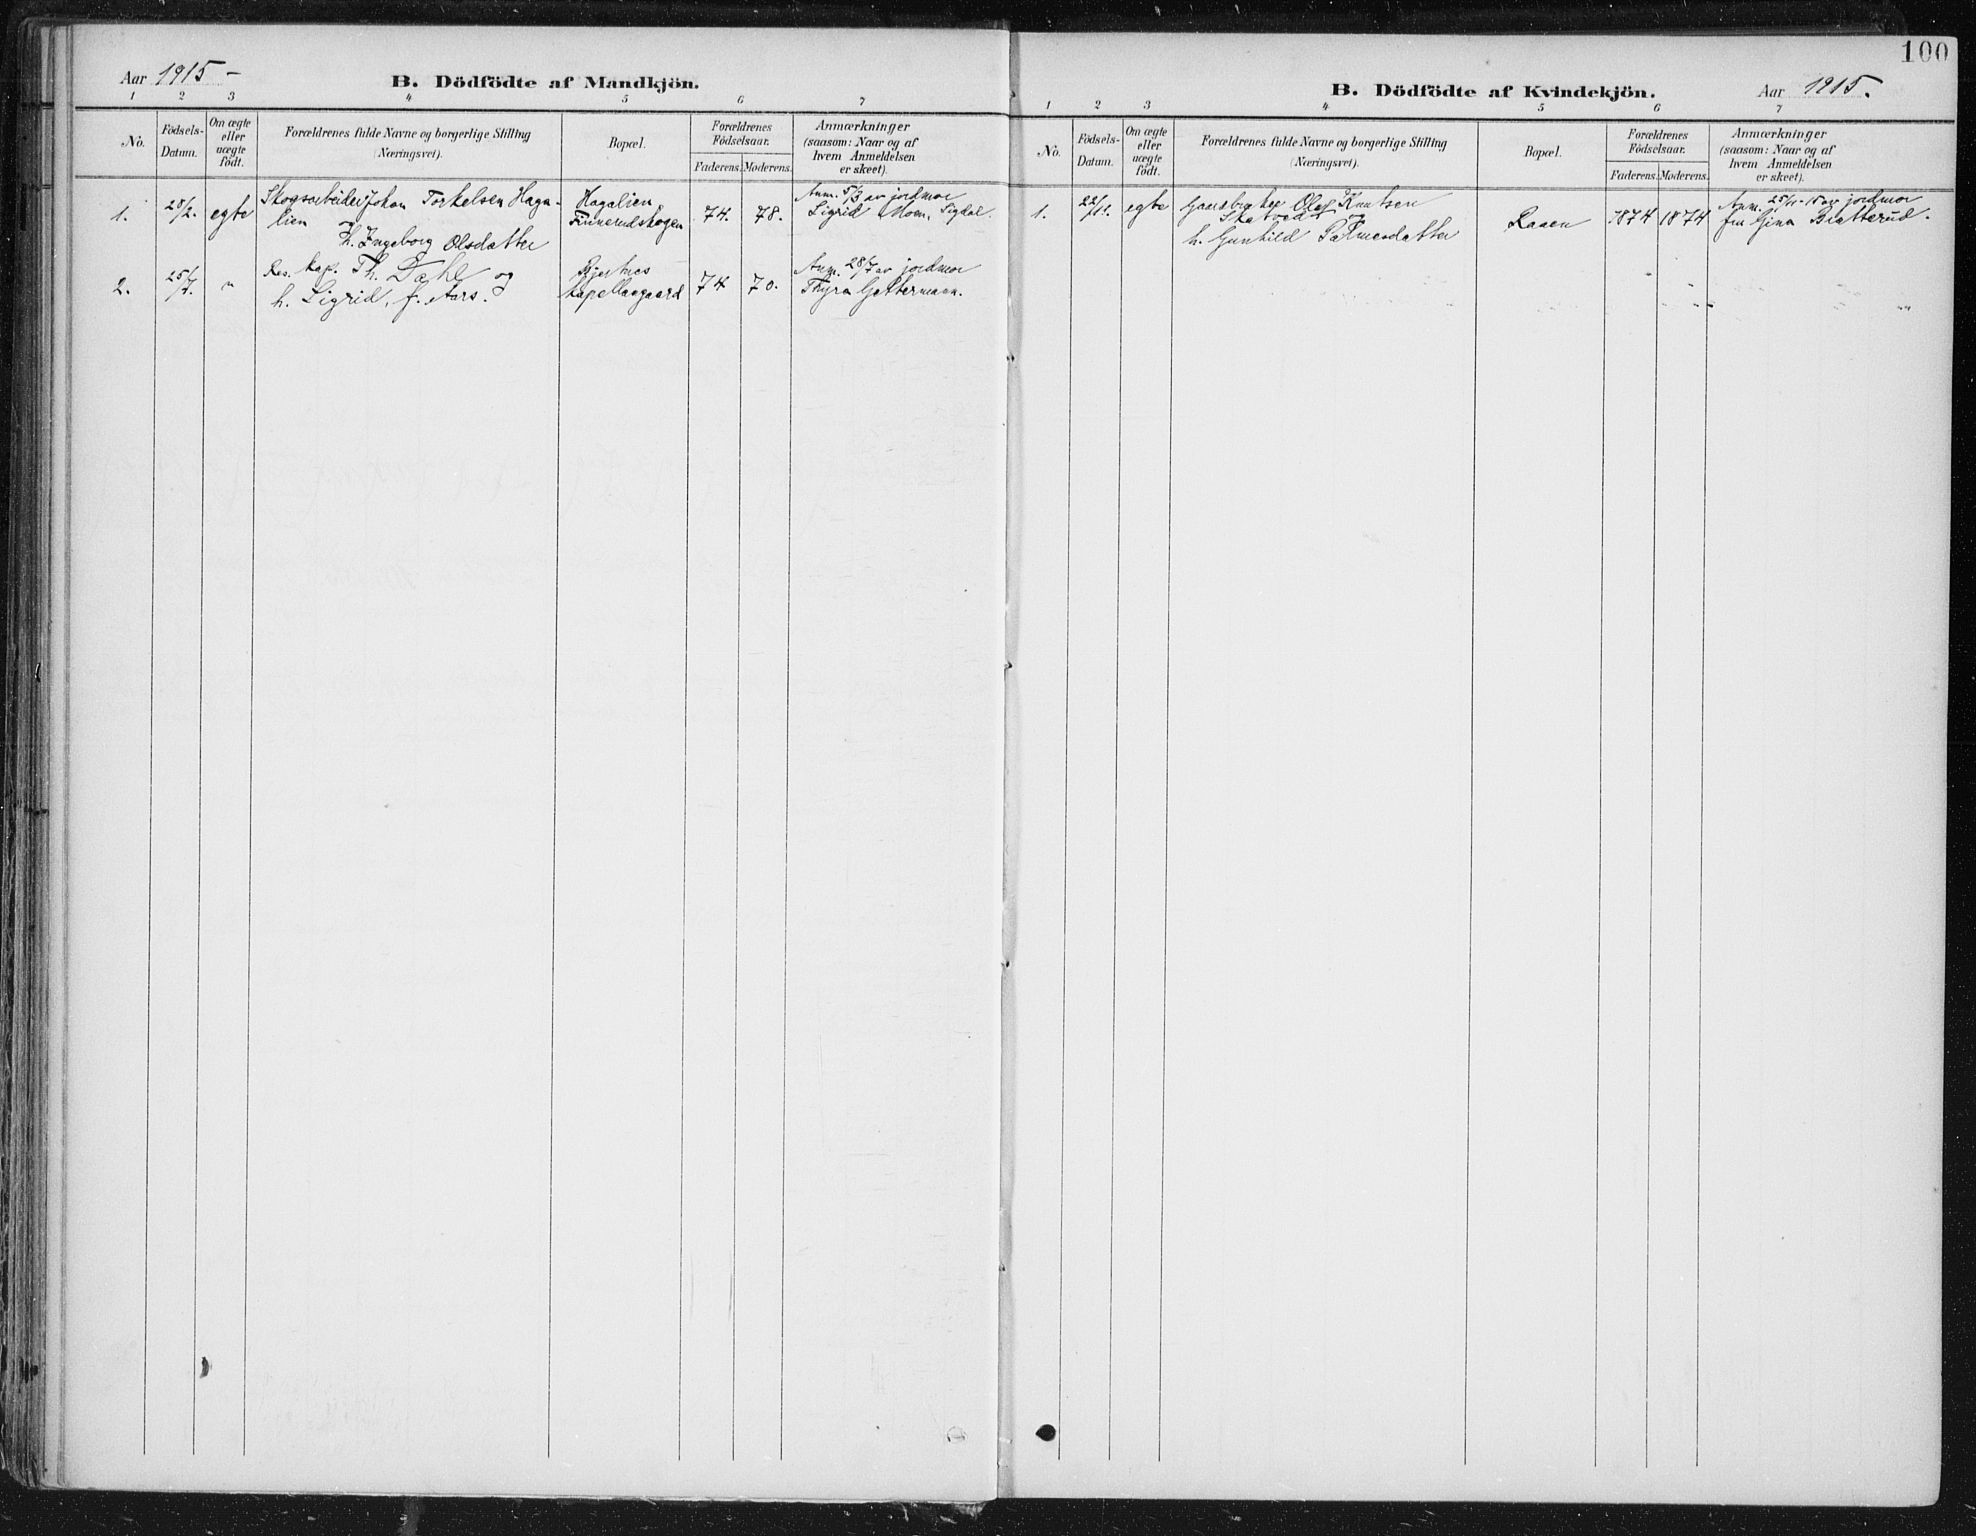 Aar 1915 –
B. Dödfödte af Mandkjön.
1 2 3 4 5 6 7
No.
Födsels-
Datum.
Om ægte
eller
uægte
födt.
Forældrenes fulde Navne og borgerlige Stilling
(Næringsvei).
Bopæl.
Forældrenes
Födselsaar.
Faderens. Moderens.
Anmærkninger
(saasom: Naar og af
hvem Anmeldelsen
er skeet).
1. 28/2. egte Skogsarbeider Johan Torkelsen Haga-
lien
h. Ingeborg Olsdatter
Hagalien,
Finnerudskogen
74. 78.
Anm. 5/3 av jordmor
Sigrid Moen, Sigdal.
2. 25/7. "
Res. kap. Th. Dahl og
h. Sigrid, f. Aars.
Bjertnes
kapellangaard
74 70.
Anm. 28/7 av jordmor
Thyra Gettermann.
100
B. Dödfödte af Kvindekjön.
Aar 1915.
1 2 3 4 5 6 7
No.
Födsels-
Datum.
Om ægte
eller
uægte
födt.
Forældrenes fulde Navne og borgerlige Stilling
(Næringsvei).
Bopæl.
Forældrenes
Födselsaar.
Faderens. Moderens.
Anmærkninger
(saasom: Naar og af
hvem Anmeldelsen
er skeet).
1. 22/11. egte Gaardbruker Olaf Knutsen
Skatvedt og
h. Gunhild Palmesdatter
Raaen
1874 1874
Anm. 25/11-15 av jordmor
fru Gina Bratterud.